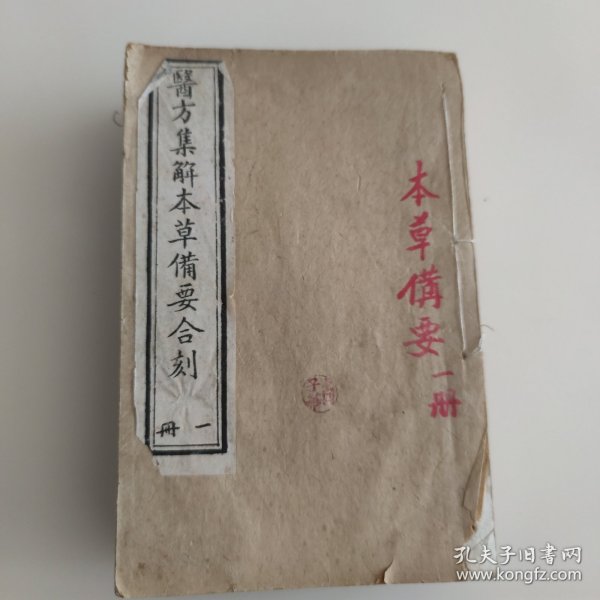 醫方集解本草備要合刻
一册
本草備要
一册
孔夫子旧书网
www.kongfz.com